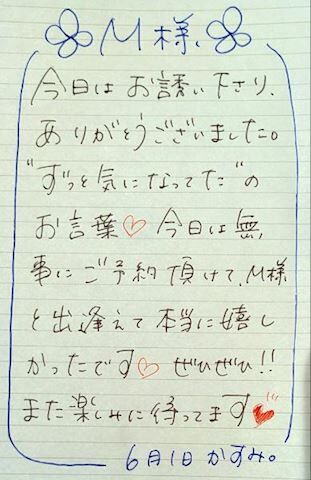 M様、
今日はお誘い下さり、
ありがとうございました。
"ずっと気になってた"の
お言葉♡今日は無
事にご予約頂けて、M様
と出逢えて本当に嬉し
かったです♡ ぜひぜひ!!
また楽しみに待ってます♥
6月1日 かすみ。